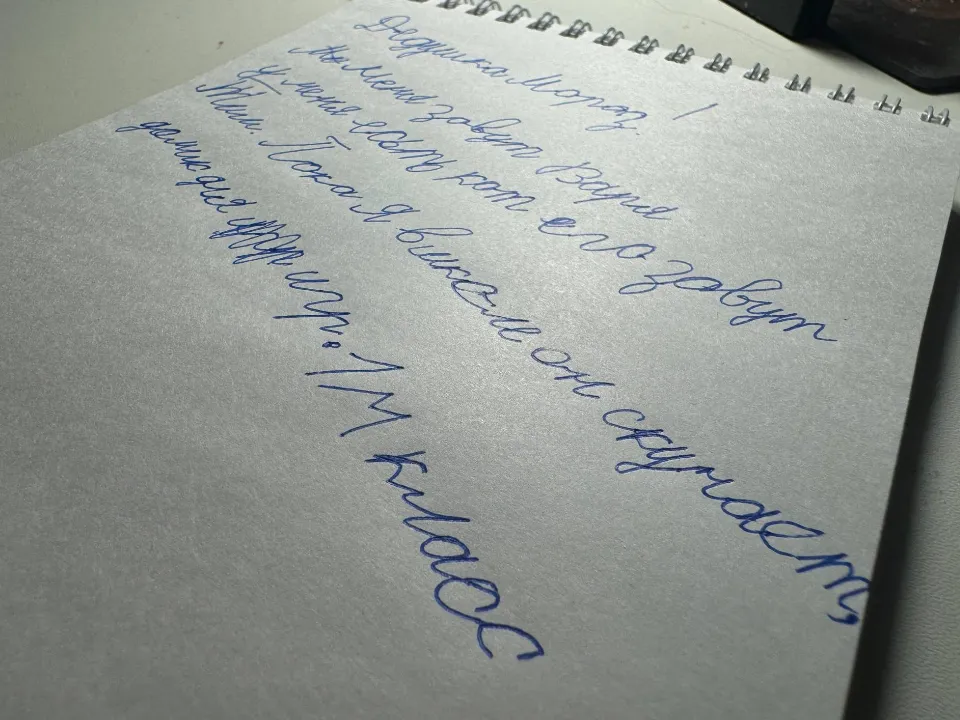 Дедушка Мороз !
меня зовут Варя
У меня есть кот его зовут
Тим. Пока я в школе он скучает,
домик для игр. 1 М класс